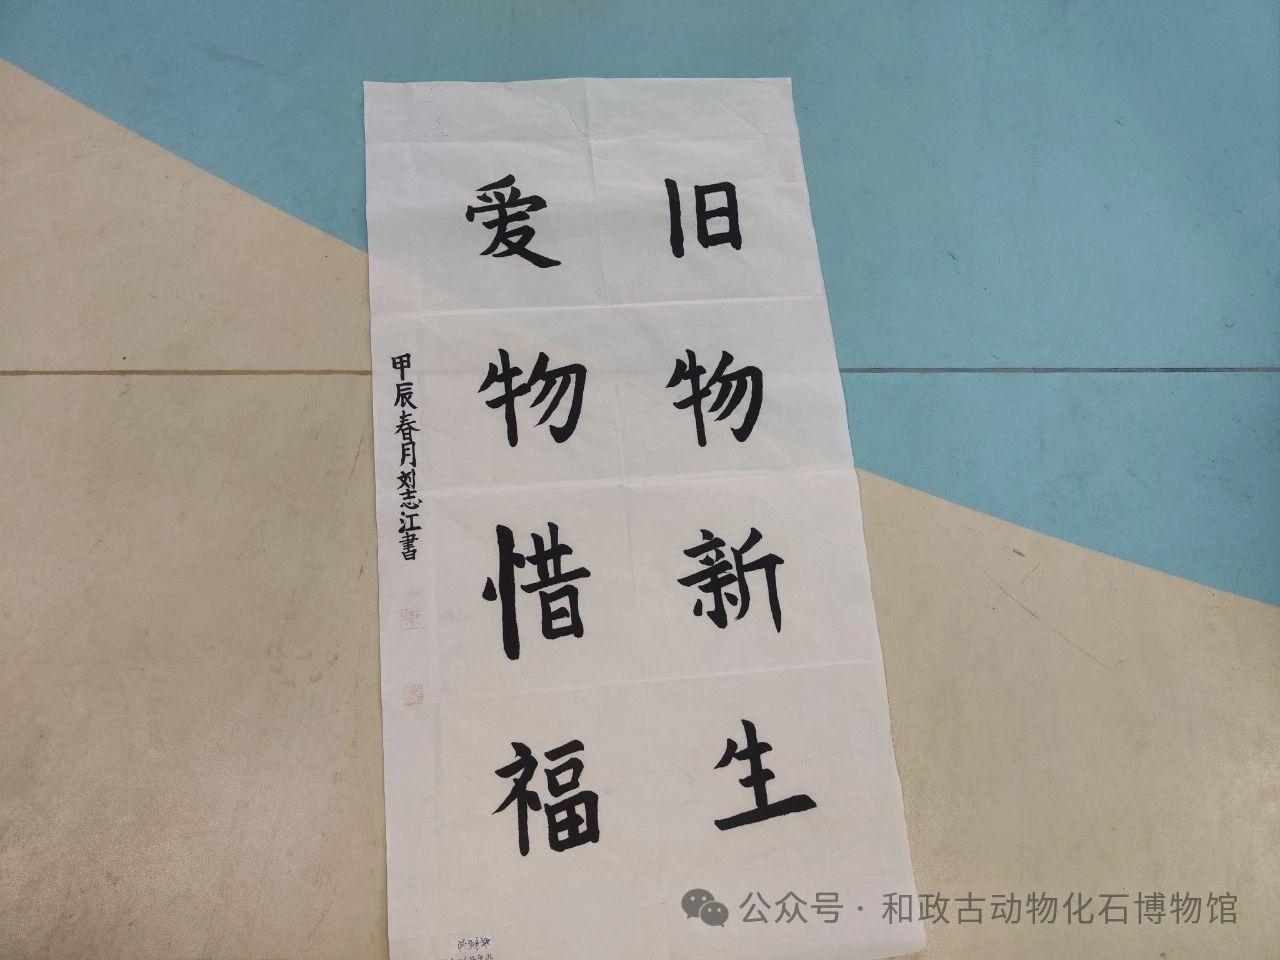 旧物新生
爱物惜福
甲辰春月刘志江書
公众号·和政古动物化石博物馆